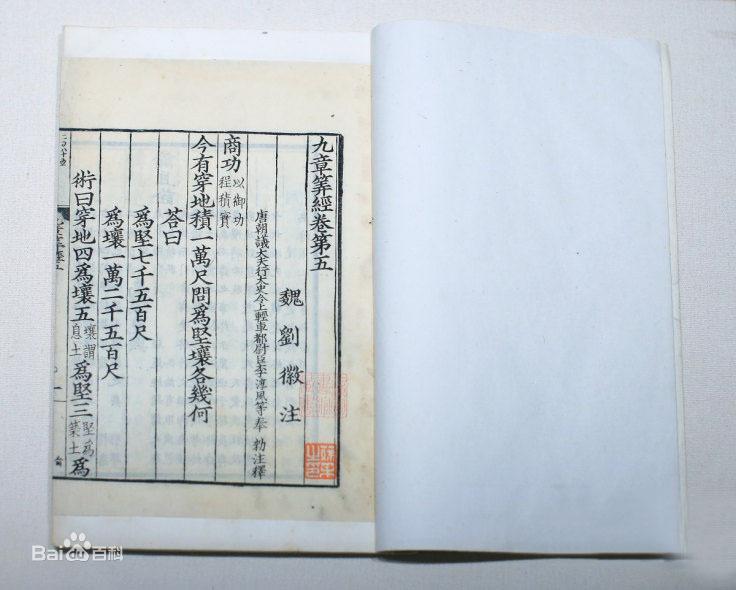 九章筭經卷第五
魏劉徽注
唐朝議大夫行太史令上輕車都尉臣李淳風等奉 勑注釋
商功 以御功程積實
今有穿地積一萬尺問爲堅壤各幾何
荅曰
爲堅七千五百尺
爲壤一萬二千五百尺
術曰穿地四爲壤五 壤謂息土 爲堅三 堅爲築土 爲
Bai百科